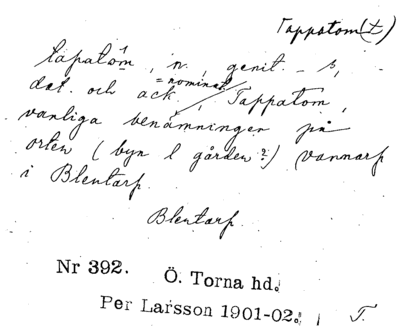 Tappatom(t)
tapatom, n., genit. -s,
dat. och ack. = nominat., Tappatom,
vanliga benämningen på
orten (byn l gården?) Vannarp
i Blentarp.
Blentarp.
Nr 392. Ö. Torna hd.
Per Larsson 1901-02. T.